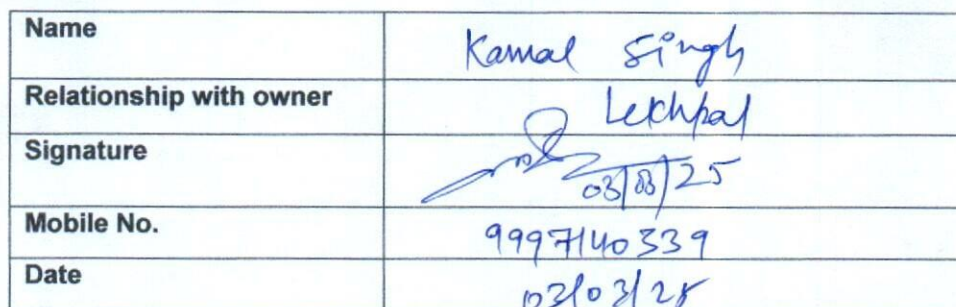 Name Kamal Singh
Relationship with owner Lekhpal
Signature 03/03/25
Mobile No. 9997140339
Date 03/03/25